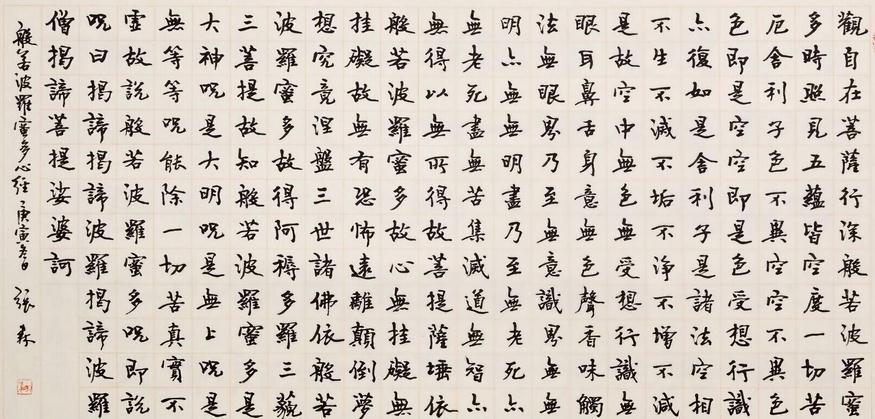 觀自在菩薩行深般若波羅蜜
多時照見五蘊皆空度一切苦
厄舍利子色不異空空不異色
色即是空空即是色受想行識
亦復如是舍利子是諸法空相
不生不滅不垢不淨不增不減
是故空中無色無受想行識無
眼耳鼻舌身意無色聲香味觸
法無眼界乃至無意識界無無
明亦無無明盡乃至無老死亦
無老死盡無苦集滅道無智亦
無得以無所得故菩提薩埵依
般若波羅蜜多故心無挂礙無
挂礙故無有恐怖遠離顛倒夢
想究竟涅盤三世諸佛依般若
波羅蜜多故得阿耨多羅三藐
三菩提故知般若波羅蜜多是
大神呪是大明呪是無上呪是
無等等呪能除一切苦真實不
虛故說般若波羅蜜多呪即說
呪曰揭諦揭諦波羅揭諦波羅
僧揭諦菩提娑婆訶
般若波羅蜜多心經 庚寅冬日 張森